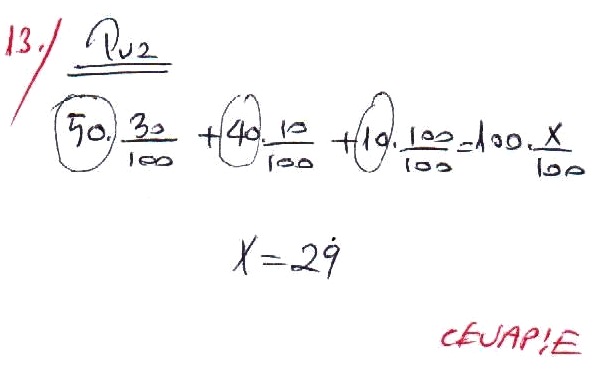 13./ Tuz
50. 30/100 + 40. 10/100 + 10. 100/100 = 100. x/100
x = 29
CEVAP: E